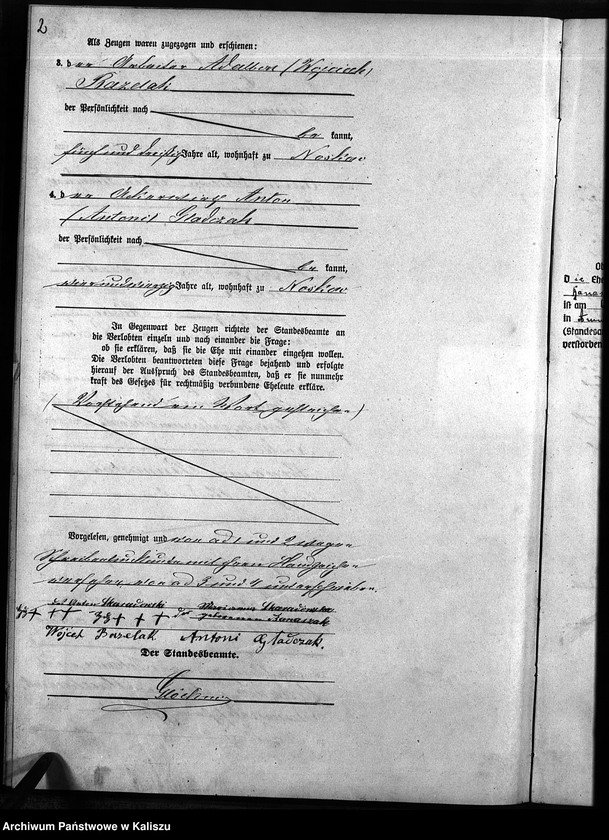 2
Als Zeugen waren zugezogen und erschienen:
3. der Arbeiter Adalbert (Wojciech)
Bazelak
der Persönlichkeit nach
be kannt,
fünf und dreißig Jahre alt, wohnhaft zu Noskow
4. der Ackerwirth Anton
(Antoni) Gładczak
der Persönlichkeit nach
be kannt,
Jahre alt, wohnhaft zu Noskow
In Gegenwart der Zeugen richtete der Standesbeamte an
die Verlobten einzeln und nach einander die Frage:
ob sie erklären, daß sie die Ehe mit einander eingehen wollen.
Die Verlobten beantworteten diese Frage bejahend und erfolgte
hierauf der Ausspruch des Standesbeamten, daß er sie nunmehr
kraft des Gesetzes für rechtmäßig verbundene Eheleute erkläre.
(Vorstehend ein Wort gestrichen)
Vorgelesen, genehmigt und von ad 1 und 2 wegen
Schreibensunkunde mit ihren Handzeichen
versehen, von ad 3 und 4 unterschrieben.
des Anton Skaradowski der Marianna Skaradowska
+ + + + + + geborenen
Wojciech Bazelak Antoni Gładczak.
Der Standesbeamte.
D ie Ehe
ist am
in
(Standesa
verstorben
Archiwum Państwowe w Kaliszu